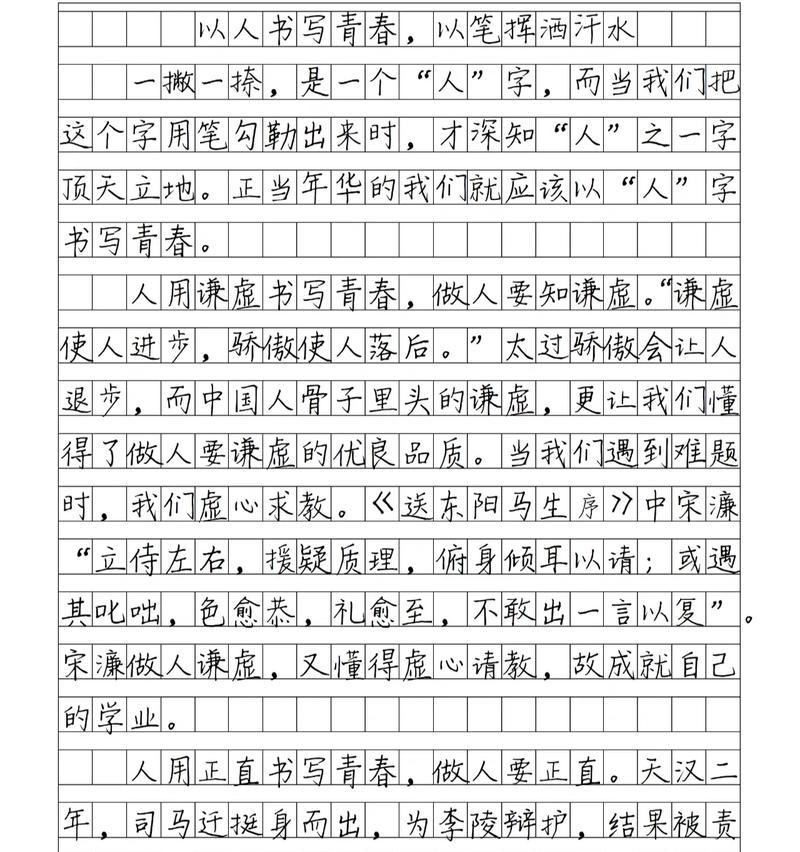 以人书写青春，以笔挥洒汗水
一撇一捺，是一个“人”字，而当我们把
这个字用笔勾勒出来时，才深知“人”之一字
顶天立地。正当年华的我们就应该以“人”字
书写青春。
人用谦虚书写青春，做人要知谦虚。“谦虚
使人进步，骄傲使人落后。”太过骄傲会让人
退步，而中国人骨子里头的谦虚，更让我们懂
得了做人要谦虚的优良品质。当我们遇到难题
时，我们虚心求教。《送东阳马生序》中宋濂
“立侍左右，援疑质理，俯身倾耳以请；或遇
其叱咄，色愈恭，礼愈至，不敢出一言以复”。
宋濂做人谦虚，又懂得虚心请教，故成就自己
的学业。
人用正直书写青春，做人要正直。天汉二
年，司马迁挺身而出，为李陵辩护，结果被责